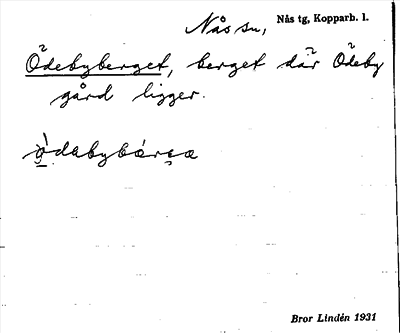 Nås sn, Nås tg, Kopparb. l.
Ödebyberget, berget där Ödeby
gård ligger.
ò̱dabybárga
Bror Lindén 1931